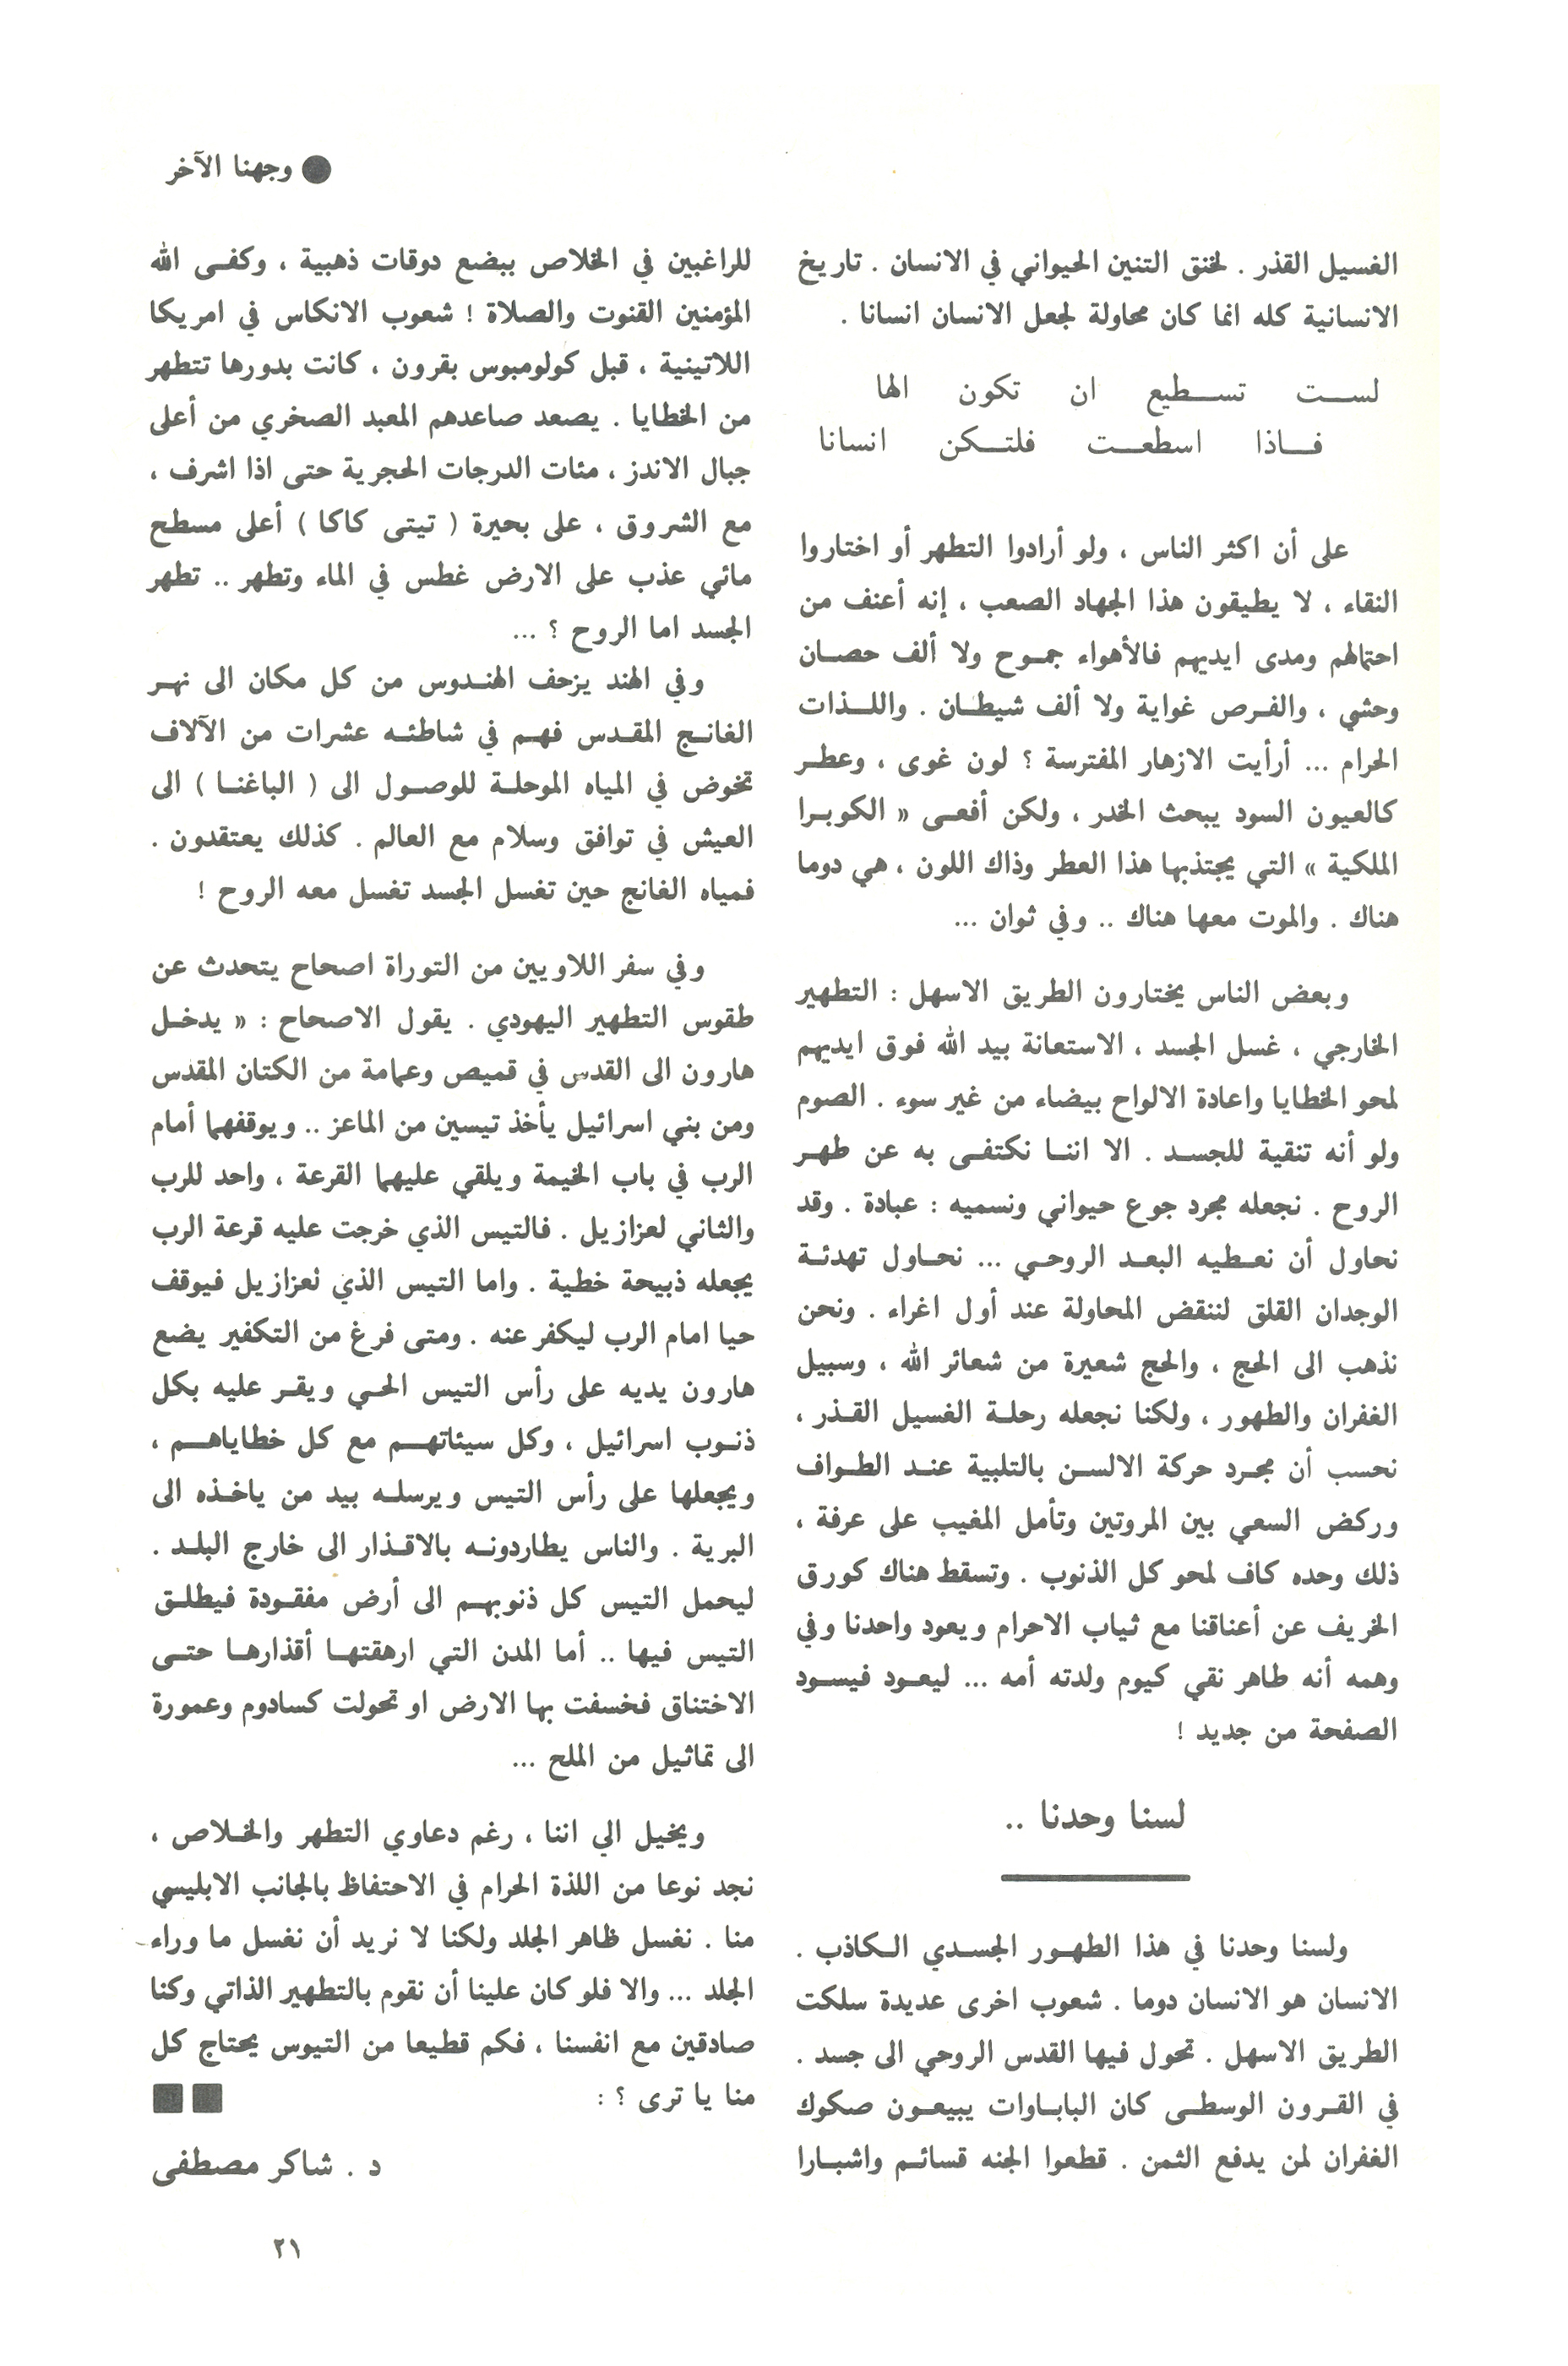 ● وجهنا الآخر
الغسيل القذر . لخنق التنين الحيواني في الانسان . تاريخ
الانسانية كله انما كان محاولة لجعل الانسان انسانا .
لست تسطيع ان تكون الها
فاذا اسطعت فلتكن انسانا
على أن اكثر الناس ، ولو أرادوا التطهر أو اختاروا
النقاء ، لا يطيقون هذا الجهاد الصعب ، إنه أعنف من
احتمالهم ومدى ايديهم فالأهواء جموح ولا ألف حصان
وحشي ، والفرص غواية ولا ألف شيطان . واللذات
الحرام ... أرأيت الازهار المفترسة ؟ لون غوى ، وعطر
كالعيون السود يبحث الخدر ، ولكن أفعى « الكوبرا
الملكية » التي يجتذبها هذا العطر وذاك اللون ، هي دوما
هناك . والموت معها هناك .. وفي ثوان ...
وبعض الناس يختارون الطريق الاسهل : التطهير
الخارجي ، غسل الجسد ، الاستعانة بيد الله فوق ايديهم
لمحو الخطايا واعادة الالواح بيضاء من غير سوء . الصوم
ولو أنه تنقية للجسد . الا اننا نكتفى به عن طهر
الروح . نجعله مجرد جوع حيواني ونسميه : عبادة . وقد
نحاول أن نعطيه البعد الروحي ... نحاول تهدئة
الوجدان القلق لننقض المحاولة عند أول اغراء . ونحن
نذهب الى الحج ، والحج شعيرة من شعائر الله ، وسبيل
الغفران والطهور ، ولكنا نجعله رحلة الغسيل القذر ،
نحسب أن مجرد حركة الالسن بالتلبية عند الطواف
وركض السعي بين المروتين وتأمل المغيب على عرفة ،
ذلك وحده كاف لمحو كل الذنوب . وتسقط هناك كورق
الخريف عن أعناقنا مع ثياب الاحرام ويعود واحدنا وفي
وهمه أنه طاهر نقي كيوم ولدته أمه ... ليعود فيسود
الصفحة من جديد !
لسنا وحدنا ..
ولسنا وحدنا في هذا الطهور الجسدي الكاذب .
الانسان هو الانسان دوما . شعوب اخرى عديدة سلكت
الطريق الاسهل . تحول فيها القدس الروحي الى جسد .
في القرون الوسطى كان البابوات يبيعون صكوك
الغفران لمن يدفع الثمن . قطعوا الجنه قسائم واشبارا
للراغبين في الخلاص ببضع دوقات ذهبية ، وكفى الله
المؤمنين القنوت والصلاة ! شعوب الانكاس في امريكا
اللاتينية ، قبل كولومبوس بقرون ، كانت بدورها تتطهر
من الخطايا . يصعد صاعدهم المعبد الصخري من أعلى
جبال الاندز ، مئات الدرجات الحجرية حتى اذا اشرف ،
مع الشروق ، على بحيرة ( تيتى كاكا ) أعلى مسطح
مائي عذب على الارض غطس في الماء وتطهر .. تطهر
الجسد اما الروح ؟ ...
وفي الهند يزحف الهندوس من كل مكان الى نهر
الغانج المقدس فهم في شاطئه عشرات من الآلاف
تخوض في المياه الموحلة للوصول الى ( الباغنا ) الى
العيش في توافق وسلام مع العالم . كذلك يعتقدون .
فمياه الغانج حين تغسل الجسد تغسل معه الروح !
وفي سفر اللاويين من التوراة اصحاح يتحدث عن
طقوس التطهير اليهودي . يقول الاصحاح : « يدخل
هارون الى القدس في قميص وعمامة من الكتان المقدس
ومن بني اسرائيل يأخذ تيسين من الماعز .. ويوقفهما أمام
الرب في باب الخيمة ويلقي عليهما القرعة ، واحد للرب
والثاني لعزازيل . فالتيس الذي خرجت عليه قرعة الرب
يجعله ذبيحة خطية . واما التيس الذي لعزازيل فيوقف
حيا امام الرب ليكفر عنه . ومتى فرغ من التكفير يضع
هارون يديه على رأس التيس الحي ويقر عليه بكل
ذنوب اسرائيل ، وكل سيئاتهم مع كل خطاياهم ،
ويجعلها على رأس التيس ويرسله بيد من ياخذه الى
البرية . والناس يطاردونه بالاقذار الى خارج البلد .
ليحمل التيس كل ذنوبهم الى أرض مفقودة فيطلق
التيس فيها .. أما المدن التي ارهقتها أقذارها حتى
الاختناق فخسفت بها الارض او تحولت كسادوم وعمورة
الى تماثيل من الملح ...
ويخيل الي اننا ، رغم دعاوي التطهر والخلاص ،
نجد نوعا من اللذة الحرام في الاحتفاظ بالجانب الابليسي
منا . نغسل ظاهر الجلد ولكنا لا نريد أن نغسل ما وراء
الجلد ... والا فلو كان علينا أن نقوم بالتطهير الذاتي وكنا
صادقين مع انفسنا ، فكم قطيعا من التيوس يحتاج كل
منا يا ترى ؟ :
د . شاكر مصطفى
٢١